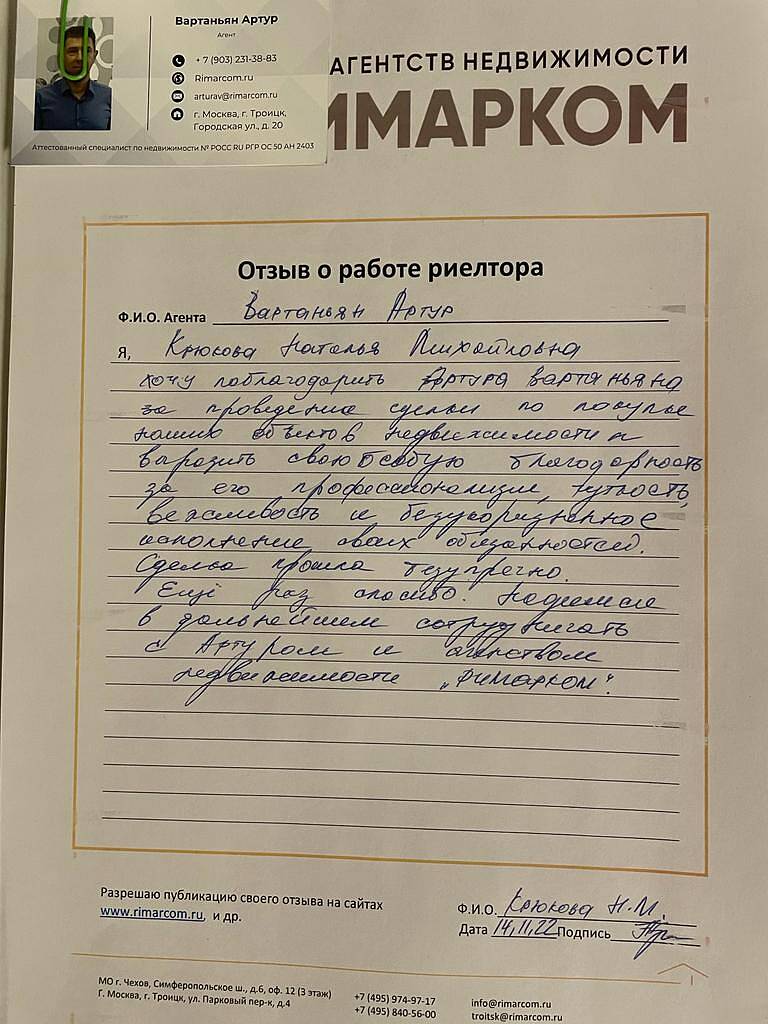 Вартаньян Артур
Агент
+ 7 (903) 231-38-83
Rimarcom.ru
arturav@rimarcom.ru
г. Москва, г. Троицк,
Городская ул., д. 20
Аттестованный специалист по недвижимости № РОСС RU РГР ОС 50 АН 2403
АГЕНТСТВ НЕДВИЖИМОСТИ
ИМАРКОМ
Отзыв о работе риелтора
Ф.И.О. Агента Вартаньян Артур
Я, Крюкова Наталья Михайловна
хочу поблагодарить Артура Вартаньяна
за проведение сделки по покупке
наших объектов недвижимости и
выразить свою особую благодарность
за его профессионализм, чуткость,
вежливость и безукоризненное
исполнение своих обязанностей.
Сделка прошла безупречно.
Ещё раз спасибо. Надеемся
в дальнейшем сотрудничать
с Артуром и агенством
недвижимости „Римарком".
Разрешаю публикацию своего отзыва на сайтах
www.rimarcom.ru, и др.
Ф.И.О. Крюкова Н.М.
Дата 14,11,22 Подпись
МО г. Чехов, Симферопольское ш., д.6, оф. 12 (3 этаж)
Г. Москва, г. Троицк, ул. Парковый пер-к, д.4
+7 (495) 974-97-17
+7 (495) 840-56-00
info@rimarcom.ru
troitsk@rimarcom.ru